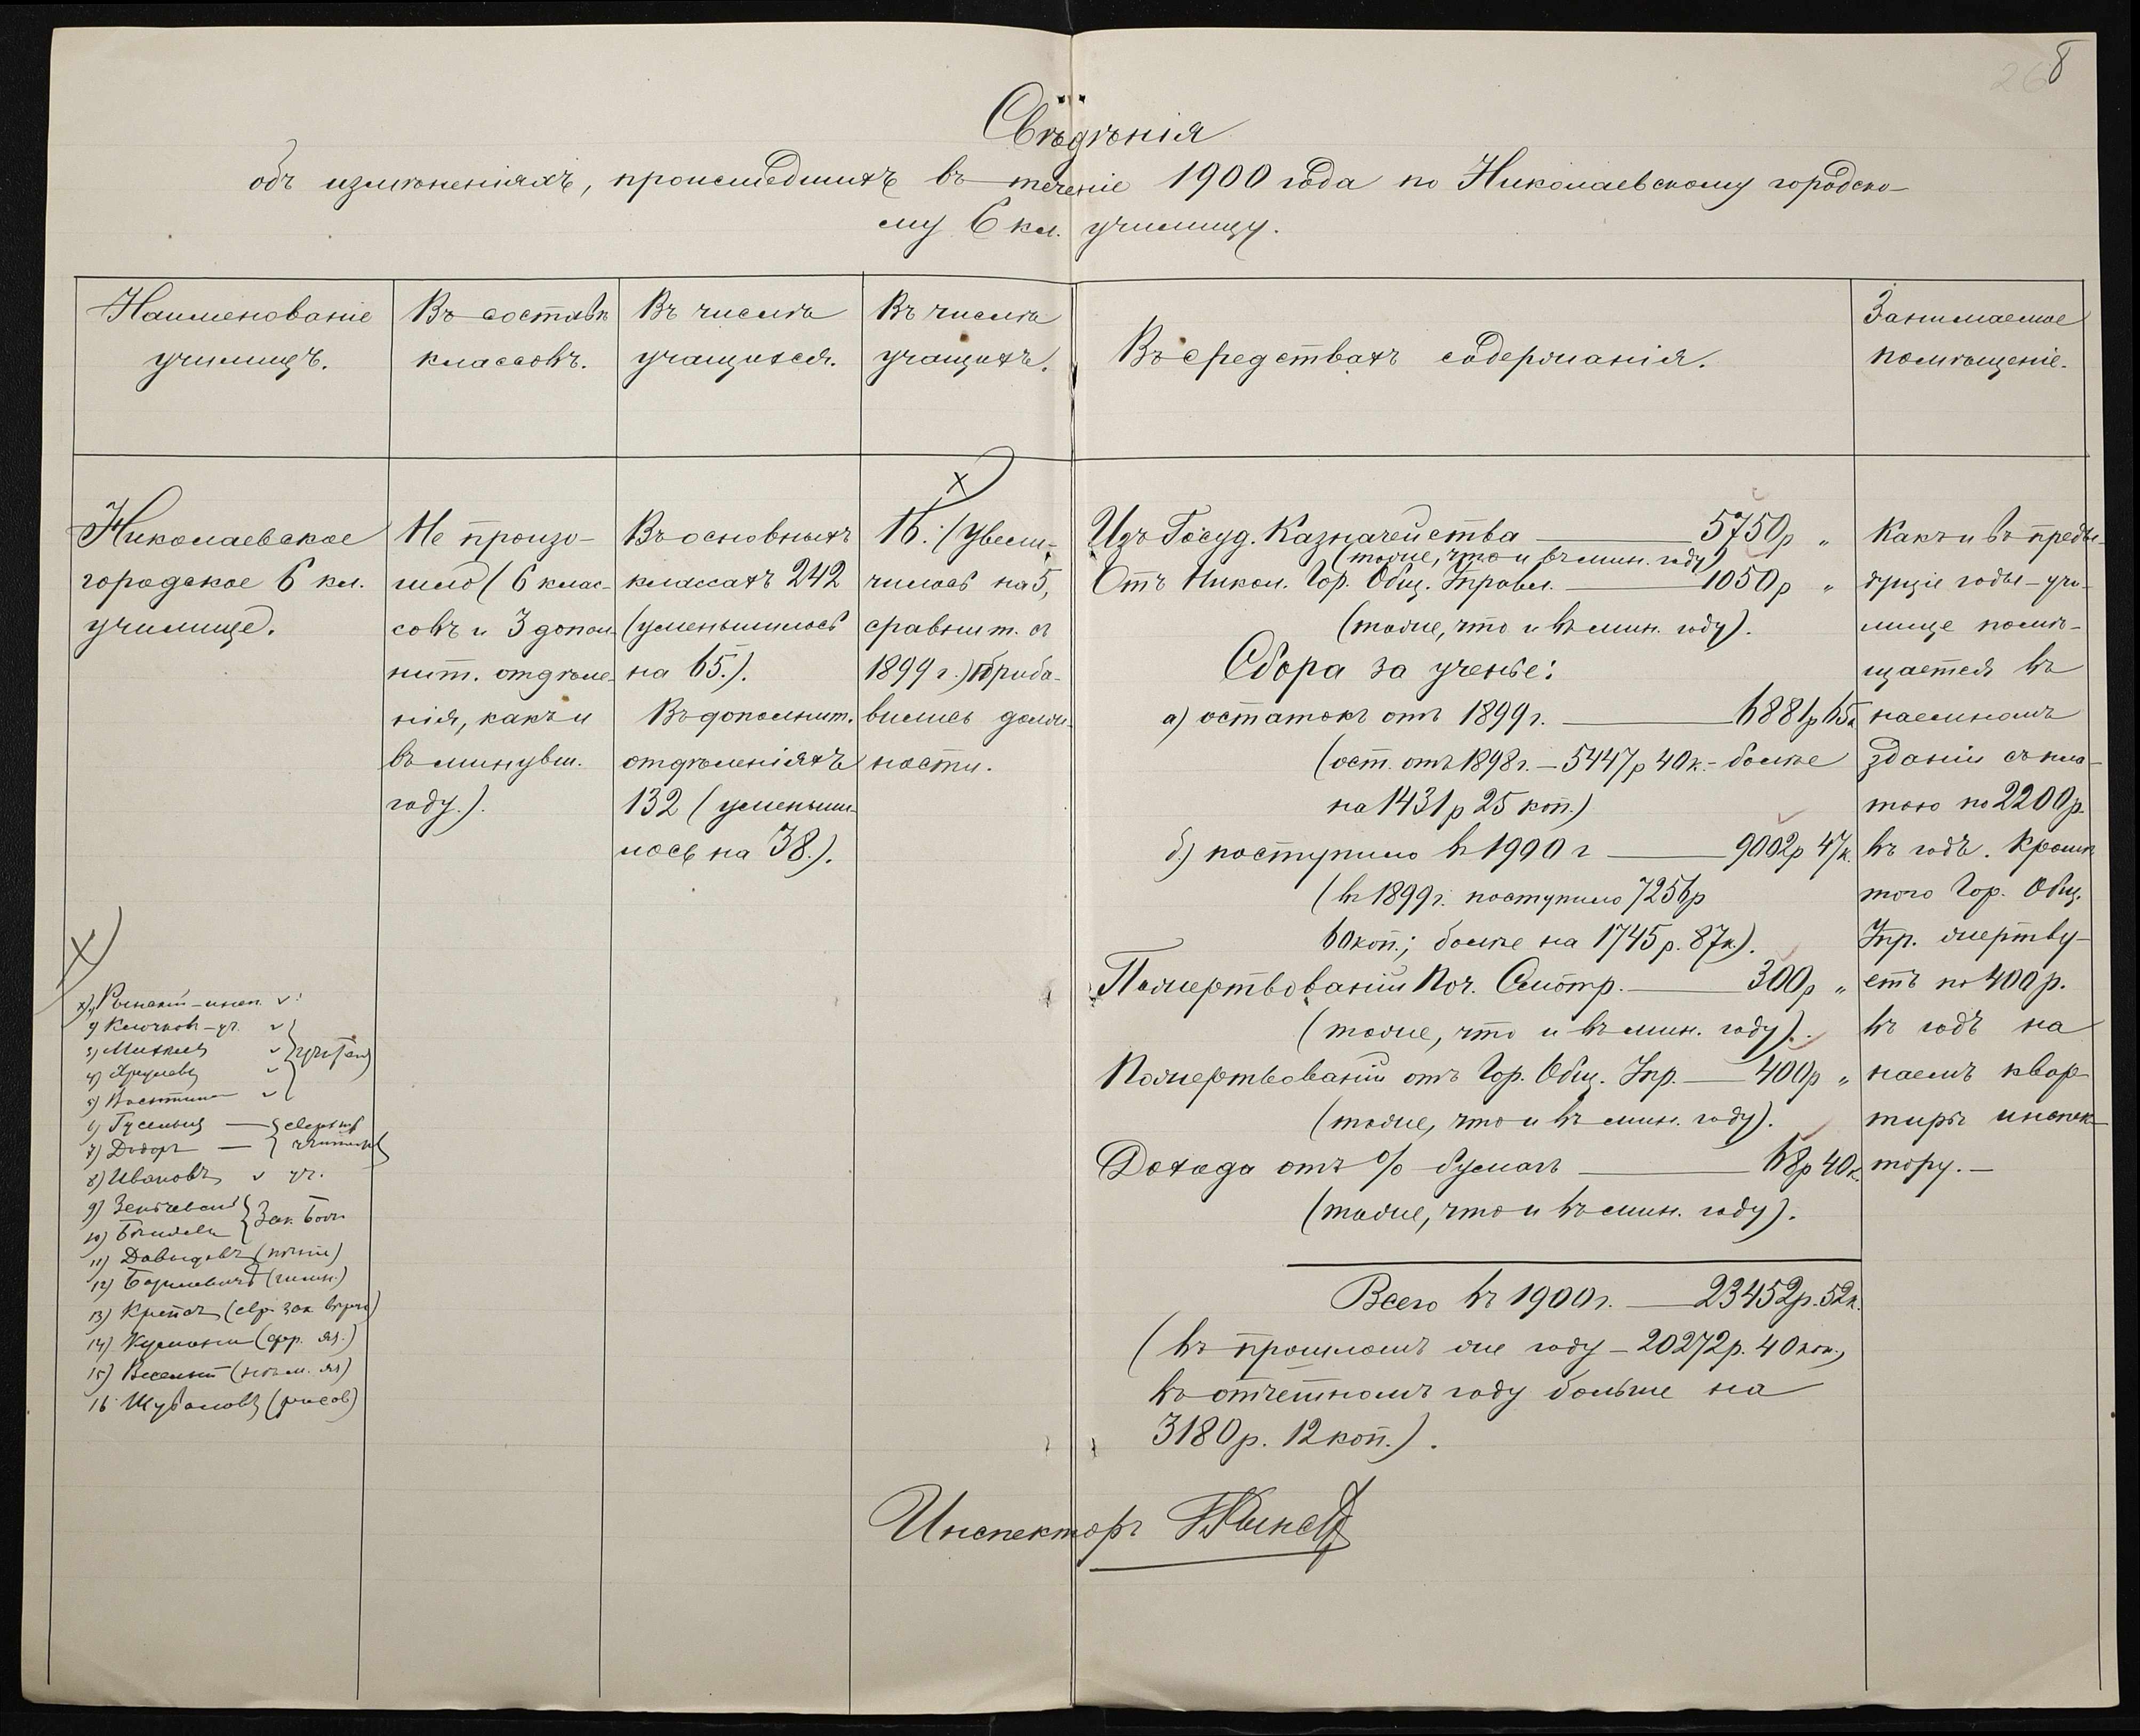 8
Свѣдѣнія
объ измѣненіяхъ, происшедшихъ въ теченіе 1900 года по Николаевскому городско-
му 6 кл. училищу.
Наименованіе
училищъ.
Въ составѣ
классовъ.
Въ числѣ
учащихся.
Въ числѣ
учащихъ.
Въ средствахъ содержанія.
Занимаемое
помѣщеніе.
Николаевское
городское 6 кл.
училище.
Не произо-
шло (6 клас-
совъ и 3 допол-
нит. отдѣле-
нія, какъ и
въ минувш.
году.).
Въ основныхъ
классахъ 242
(уменьшилось
на 65.).
Въ дополнит.
отдѣленіяхъ
132 (уменьши-
лось на 38.).
х)
16. (Увели-
чилось на 5,
сравнит. съ
1899 г.) Приба-
вились долж-
ности.
Изъ Госуд. Казначейства — 5750р „
(тоже, что и въ мин. году)
Отъ Никол. Гор. Общ. Управл. — 1050р „
(тоже, что и въ мин. году).
Сбора за ученье:
а) остатокъ отъ 1899 г. — 6881р 65к
(ост. отъ 1898 г. — 5447р 40к. — болѣе
на 1431р 25 коп.)
б) поступило въ 1900 г — 9002р 47к.
(въ 1899 г. поступило 7256р
60 коп.; болѣе на 1745 р. 87к).
Пожертвованій Поч. Смотр. — 300р „
(тоже, что и въ мин. году).
Пожертвованій отъ Гор. Общ. Упр. — 400р „
(тоже, что и въ мин. году).
Дохода отъ % бумагъ — 68р 40к.
(тоже, что и въ мин. году).
Всего въ 1900 г. — 23452р. 52к.
(въ прошломъ же году — 20272р. 40 коп.,
въ отчетномъ году больше на
3180р. 12 коп.).
Какъ и въ преды-
дущіе годы — учи-
лище помѣ-
щается въ
наемномъ
зданіи съ пла-
тою по 2200р.
въ годъ. Кромѣ
того Гор. Общ.
Упр. жертву-
етъ по 400р.
въ годъ на
наемъ квар-
тиры инспек-
тору. —
х)
2) Клочковъ — уч.
3) Михѣевъ
учителя
6) Гусельн
8) Ивановъ уч.
Зак. Бож.
11) Давыдовъ (пѣнія)
12) (гимн.)
13) (евр. зак. вѣроуч)
14) (фр. яз.)
15) (нѣм. яз)
16 Шубаловъ (рисов)
Инспекторъ